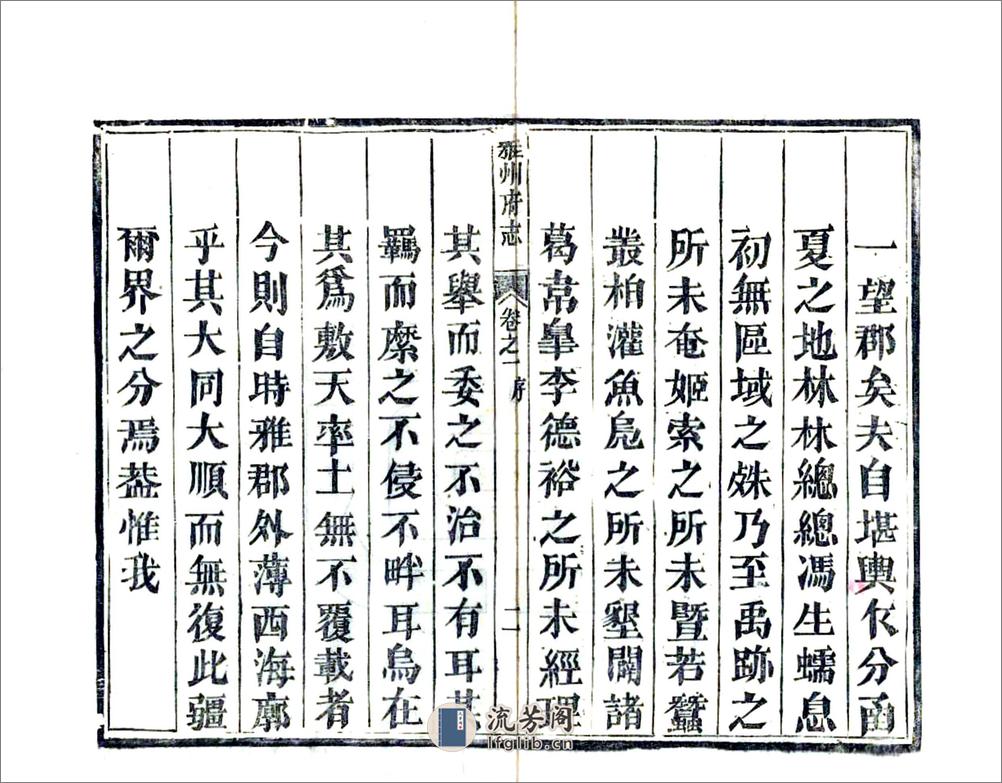 一望郡矣夫自堪輿仌分函
夏之地林林總總馮生蠕息
初無區域之殊乃至禹跡之
所未奄姬索之所未暨若蠶
叢柏灌魚凫之所未墾闢諸
葛韋臯李德裕之所未經理
雅州府志 卷之一 序 二
其舉而委之不治不有耳其
羈而縻之不侵不畔耳烏在
其爲敷天率土無不覆載者
今則自時雅郡外薄西海廓
乎其大同大順而無復此疆
爾界之分焉葢惟我
流芳阁
lfglib.cn